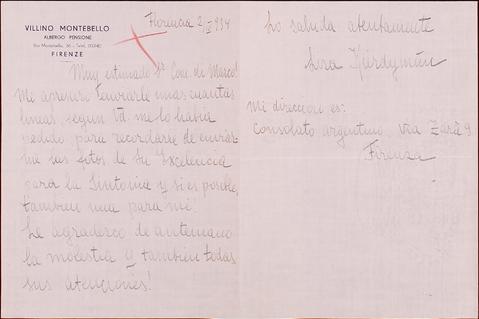 VILLINO MONTEBELLO
ALBERGO PENSIONE
Via Montebello, 36 - Telef.
FIRENZE
Florencia 2/X 934
Muy estimado Sr. Com. di Marco!
Mi apresuro enviarle unas cuantas
lineas, segun Vd. me lo habia
pedido, para recordarse de enviar-
me las fotos de Su Excelencia
para la Sintonia y si es posible,
tambien una para mi.
Le agradezco de antemano
la molestia y también todas
sus atenciones!
Lo saluda atentamente
Mi direccion es:
Consolato argentino, via Zara 9
Firenza